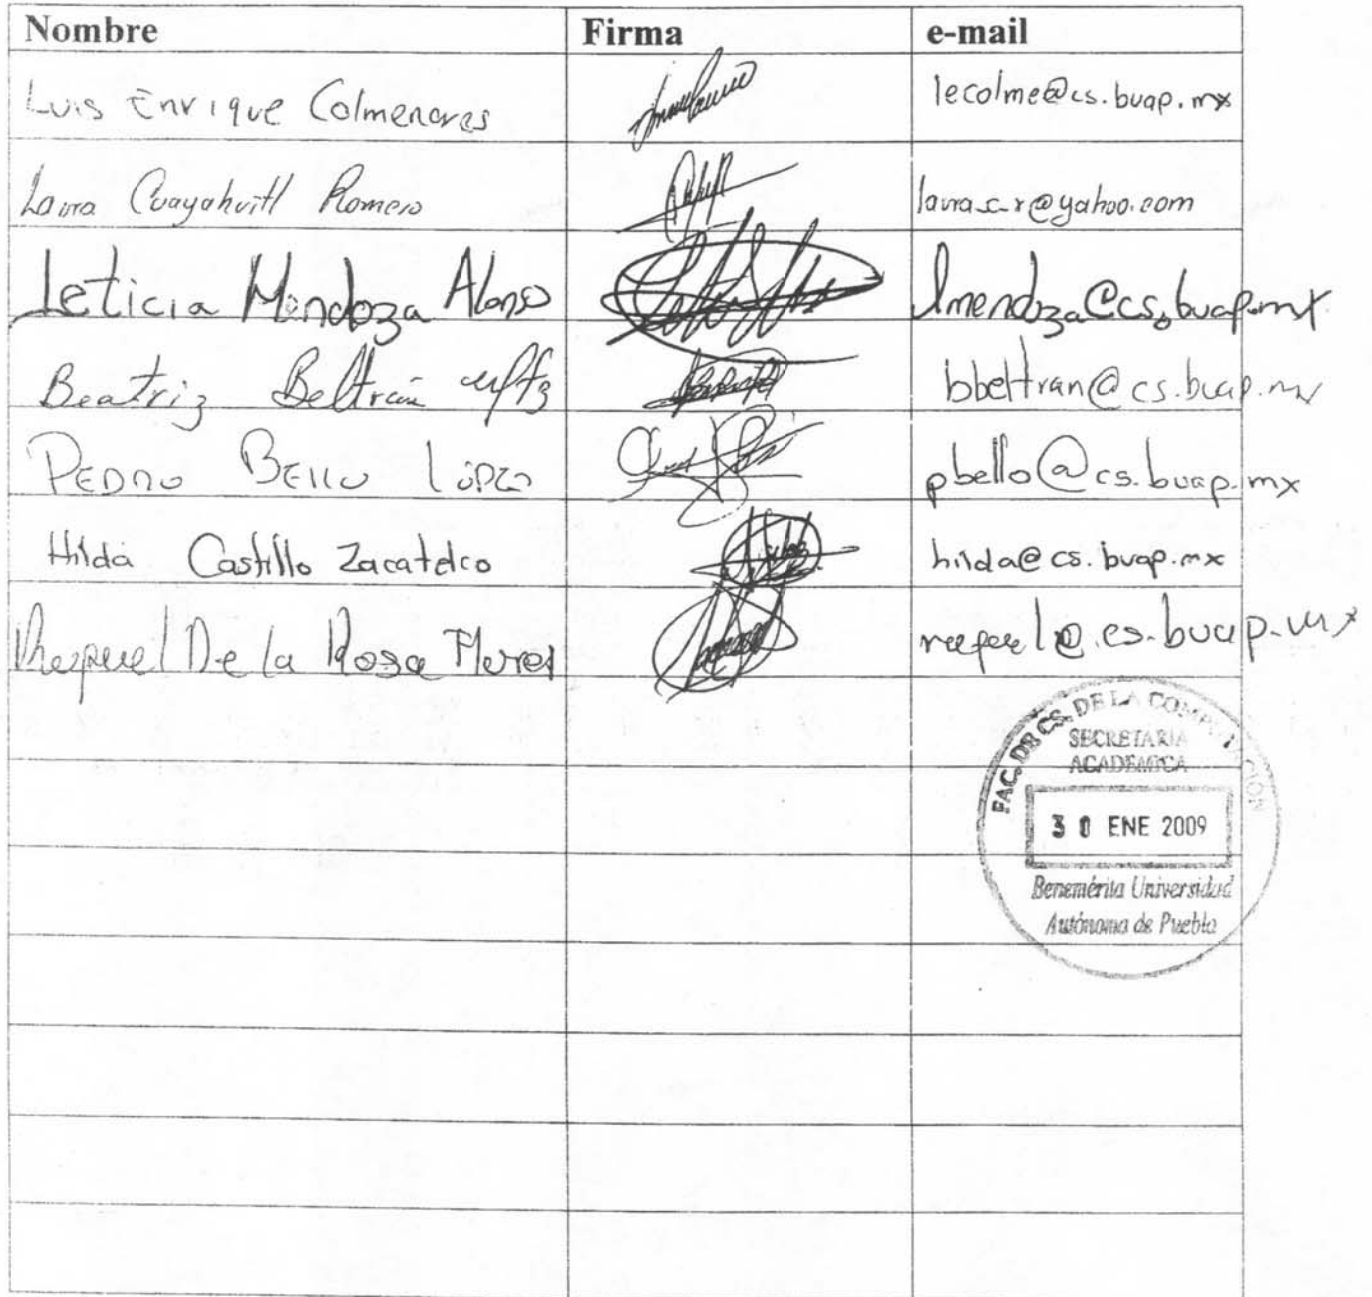 Nombre Firma e-mail
Luis Enrique Colmenares lecolme@cs.buap.mx
Laura Cuayahuitl Romero laura_c_r@yahoo.com
Leticia Mendoza Alonso lmendoza@cs.buap.mx
Beatriz Beltrán bbeltran@cs.buap.mx
PEDRO BELLO LÓPEZ pbello@cs.buap.mx
Hilda Castillo Zacatelco hilda@cs.buap.mx
Rafael De la Rosa Flores rafael@cs.buap.mx
FAC. DE CS. DE LA COMPUTACION
SECRETARIA
ACADEMICA
30 ENE 2009
Benemérita Universidad
Autónoma de Puebla